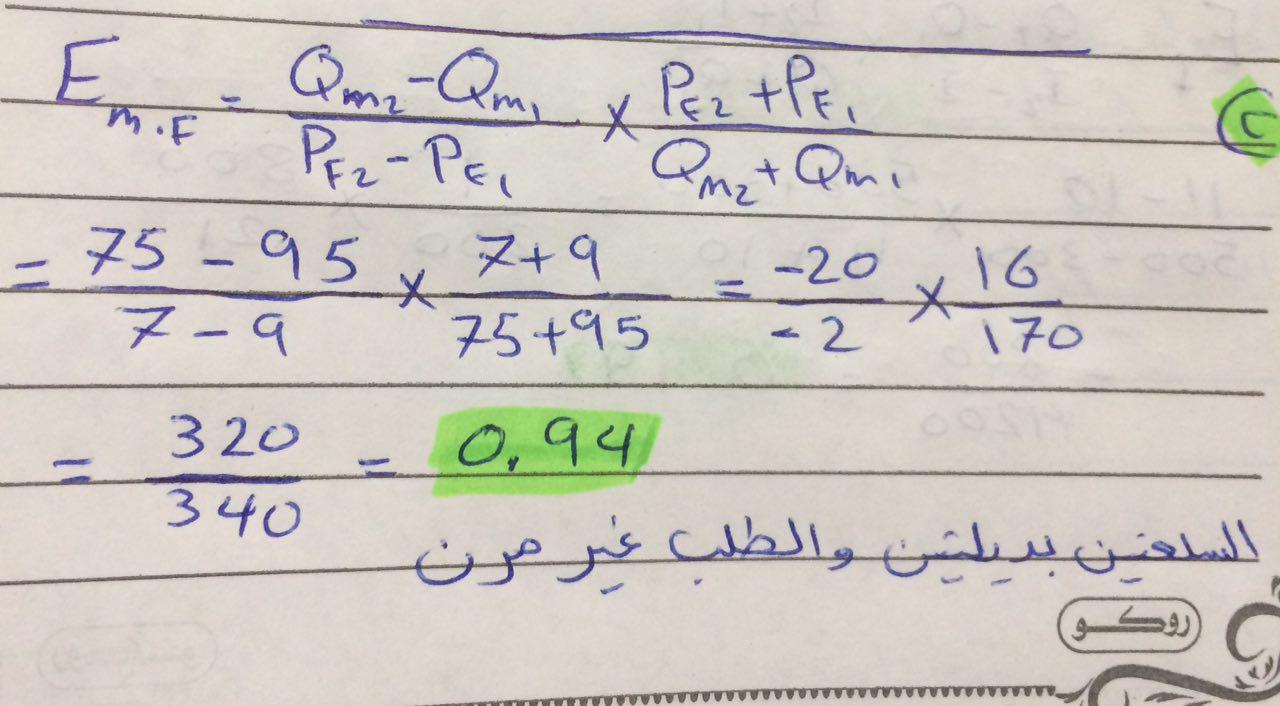 E m.F = Qm2 - Qm1 / PF2 - PF1 × PF2 + PF1 / Qm2 + Qm1 C
= 75 - 95 / 7 - 9 × 7 + 9 / 75 + 95 = -20 / -2 × 16 / 170
= 320 / 340 = 0.94
السلعتين بديلتين والطلب غير مرن
روكو